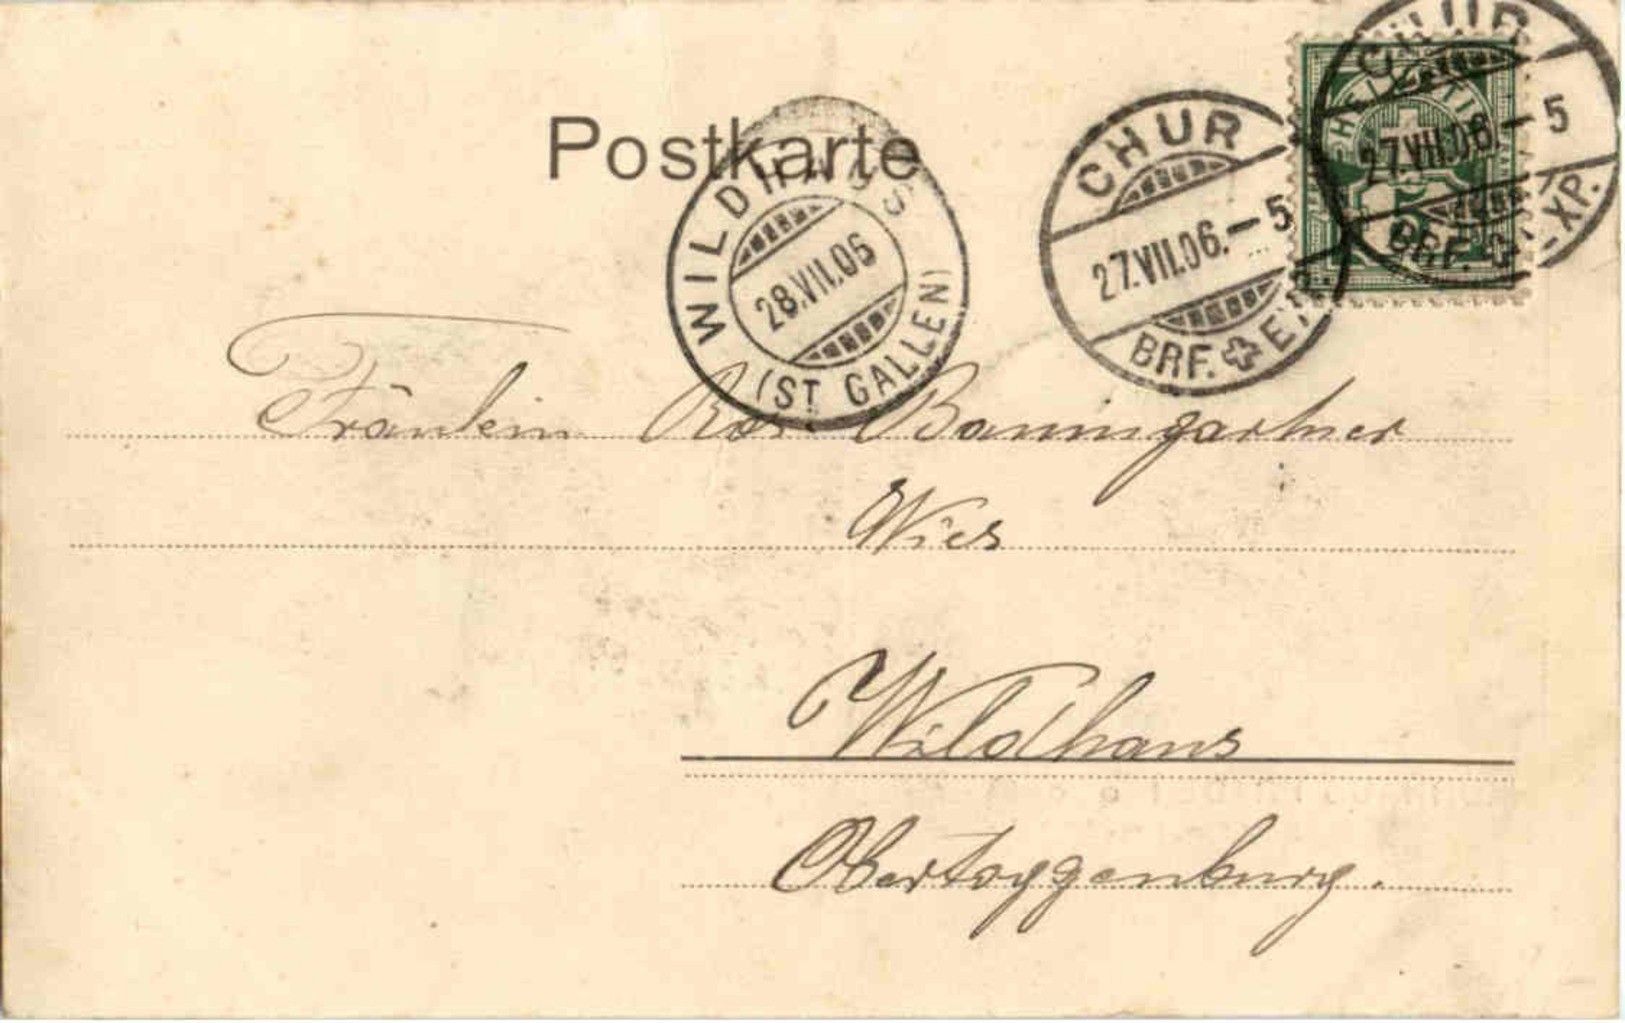 Postkarte
WILDHAUS
28.VII.06
(ST. GALLEN)
CHUR
27.VII.06.-5
BRF. EXP.
HELVETIA
CHUR
27.VII.06.-5
BRF. EXP.
Fräulein Rosi Baumgartner
Wies
Wildhaus
Obertoggenburg.